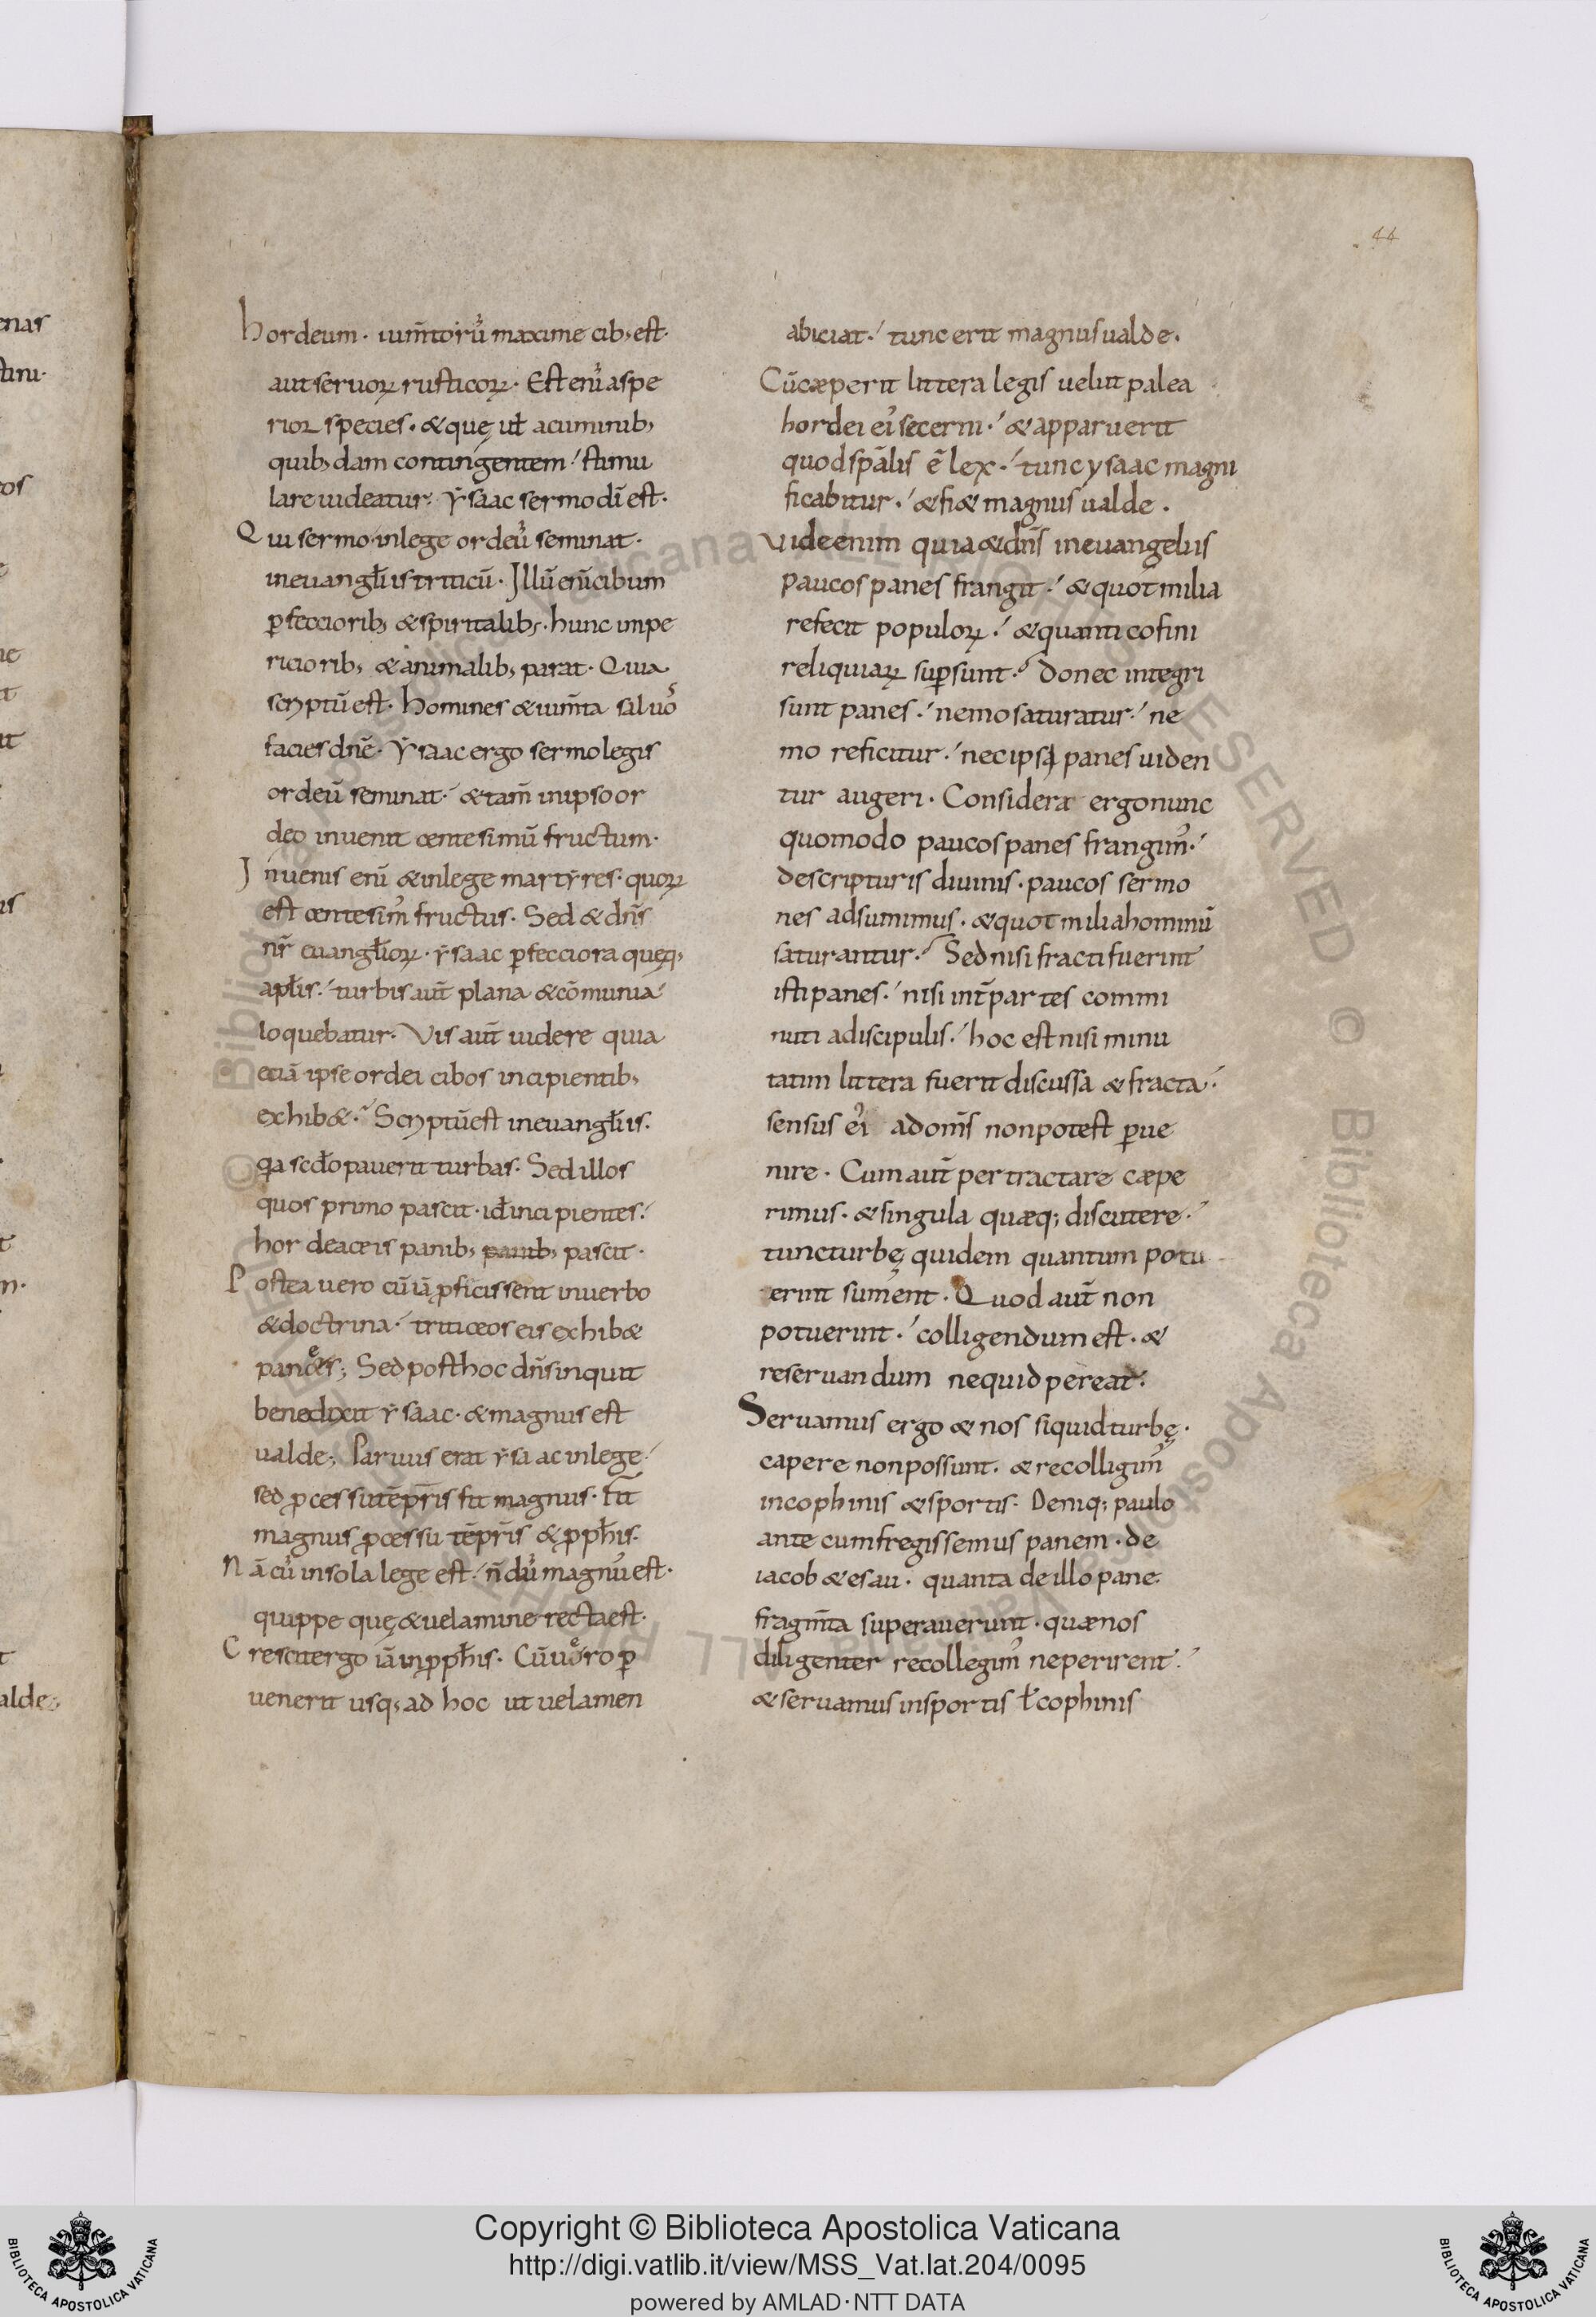 44
hordeum · ium̄toꝝ maxime cib; est·
aut seruoꝝ rusticoꝝ · Est eni᷒ aspe
rior species · & quę uł acuminib;
quib;dam contingentem ·' stimu
lare uideatur · ẏsaac sermo dī est·
Qui sermo in lege ordeū seminat·
in euangłiis triticū · Illū enī cibum
ꝑfeccio rib; & spiritalib; · hunc impe
ricio rib; & animalib; parat · Quia
scriptū est · homines & ium̄ta saluos
facies dn̄e · ẏsaac ergo sermo legis
ordeū seminat ·' & tam̄ in ipso or
deo inuenit centesimū fructum·
Inuenis enī & in lege martẏres · quoꝝ
est centesim᷒ fructus · Sed & dn̄s
nr̄ euangłioꝝ · ẏsaac ꝑfecciora quęq;
apłis ·' turbis aut̄ plana & cōmunia
loquebatur · Vis aut̄ uidere quia
eciā ipse ordei cibos incipientib;
exhib& · Scriptū est in euangłiis·
qa scdo pauerit turbas · Sed illos
quos primo pascit · id inci pientes ·'
hor deaceis panib; panib; pascit ·
Postea uero cū iā ꝓficissent in uerbo
& doctrina ·' triticeos eis exhib&
panes; Sed post hoc dn̄s inquit
benedixit ẏsaac · & magnus est
ualde; Paruus erat ẏsaac in lege ·'
sed ꝓcessu tēpr̄is fit magnus · fit
magnus ꝓcessu tēpr̄is & ꝓpħis·
Nā cū in sola lege est ·' n̄dū magnus est·
quippe quę & uelamine tecta est·
Crescit ergo iā in ꝓpħis · Cū uero ꝑ
uenerit usq; ad hoc ut uelamen
abiciat ·' tunc erit magnus ualde ·
Cū cæperit littera legis uelut palea
hordei ei᷒ secerni ·' & apparuerit
quod spālis ē lex ·' tunc ysaac magni
ficabitur ·' & fi& magnus ualde ·
Vide enim quia & dn̄s in euangeliis
paucos panes frangit ·' & quot milia
refecit populoꝝ ·' & quanti cofini
reliquiaꝝ suꝑsunt · Donec integri
sunt panes ·' nemo saturatur ·' ne
mo reficitur ·' nec ipsi panes uiden
tur augeri · Considera ergo nunc
quomodo paucos panes frangim᷒ ·'
de scripturis diuinis · paucos sermo
nes adsumimus · & quot milia hominū
saturantur · Sed nisi fracti fuerint
isti panes ·' nisi int̄ partes commi
nuti a discipulis ·' hoc est nisi minu
tatim littera fuerit discussa & fracta ·'
sensus ei᷒ ad om̄s non potest ꝑue
nire · Cum aut̄ pertractare cæpe
rimus · & singula quæq; discutere ·'
tunc turbę quidem quantum potu
erint sument · Quod aut̄ non
potuerint ·' colligendum est · &
reseruandum ne quid pereat ·
Seruamus ergo & nos si quid turbę ·
capere non possunt · & recolligim᷒
in cophinis & sportis · Deniq; paulo
ante cum fregissemus panem · de
iacob & esau · quanta de illo pane·
fragm̄ta superauerunt · quæ nos
diligenter recollegim᷒ ne perirent ·'
& seruamus in sportis ł cophinis
enas
stini·
os
Copyright © Biblioteca Apostolica Vaticana
http://digi.vatlib.it/view/MSS_Vat.lat.204/0095
powered by AMLAD·NTT DATA
BIBLIOTECA APOSTOLICA VATICANA
BIBLIOTECA APOSTOLICA VATICANA